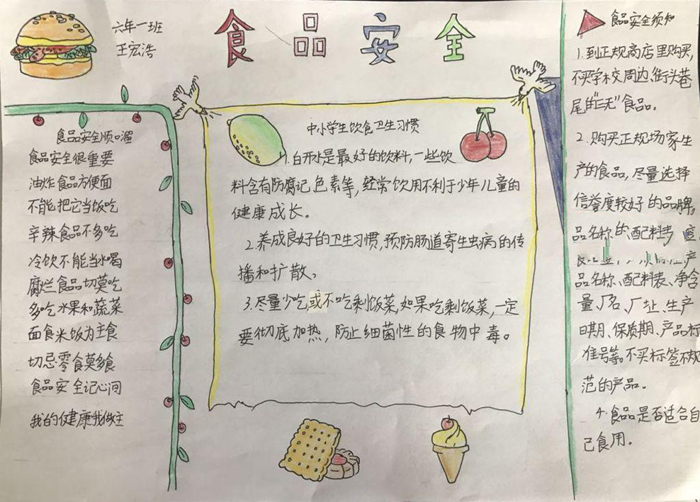 六年一班
王宏浩
食品安全
食品安全顺口溜
食品安全很重要
油炸食品方便面
不能把它当饭吃
辛辣食品不多吃
冷饮不能当水喝
腐烂食品切莫吃
多吃水果和蔬菜
面食米饭为主食
切忌零食莫贪食
食品安全记心间
我的健康我做主
中小学生饮食卫生习惯
1.白开水是最好的饮料,一些饮
料含有防腐记色素等,经常饮用不利于少年儿童的
健康成长。
2.养成良好的卫生习惯,预防肠道寄生虫病的传
播和扩散、
3.尽量少吃或不吃剩饭菜,如果吃剩饭菜,一定
要彻底加热,防止细菌性的食物中毒。
食品安全须知
1.到正规商店里购买,
不买学校周边、街头巷
尾的"三无"食品。
2.购买正规场家生
产的食品,尽量选择
信誉度较好的品牌,
品名称的、配料表
品名称、配料表、净含
量、厂名、厂址、生产
日期、保质期、产品标
准号等。不买标签不规
范的产品。
4.食品是否适合自
己食用。